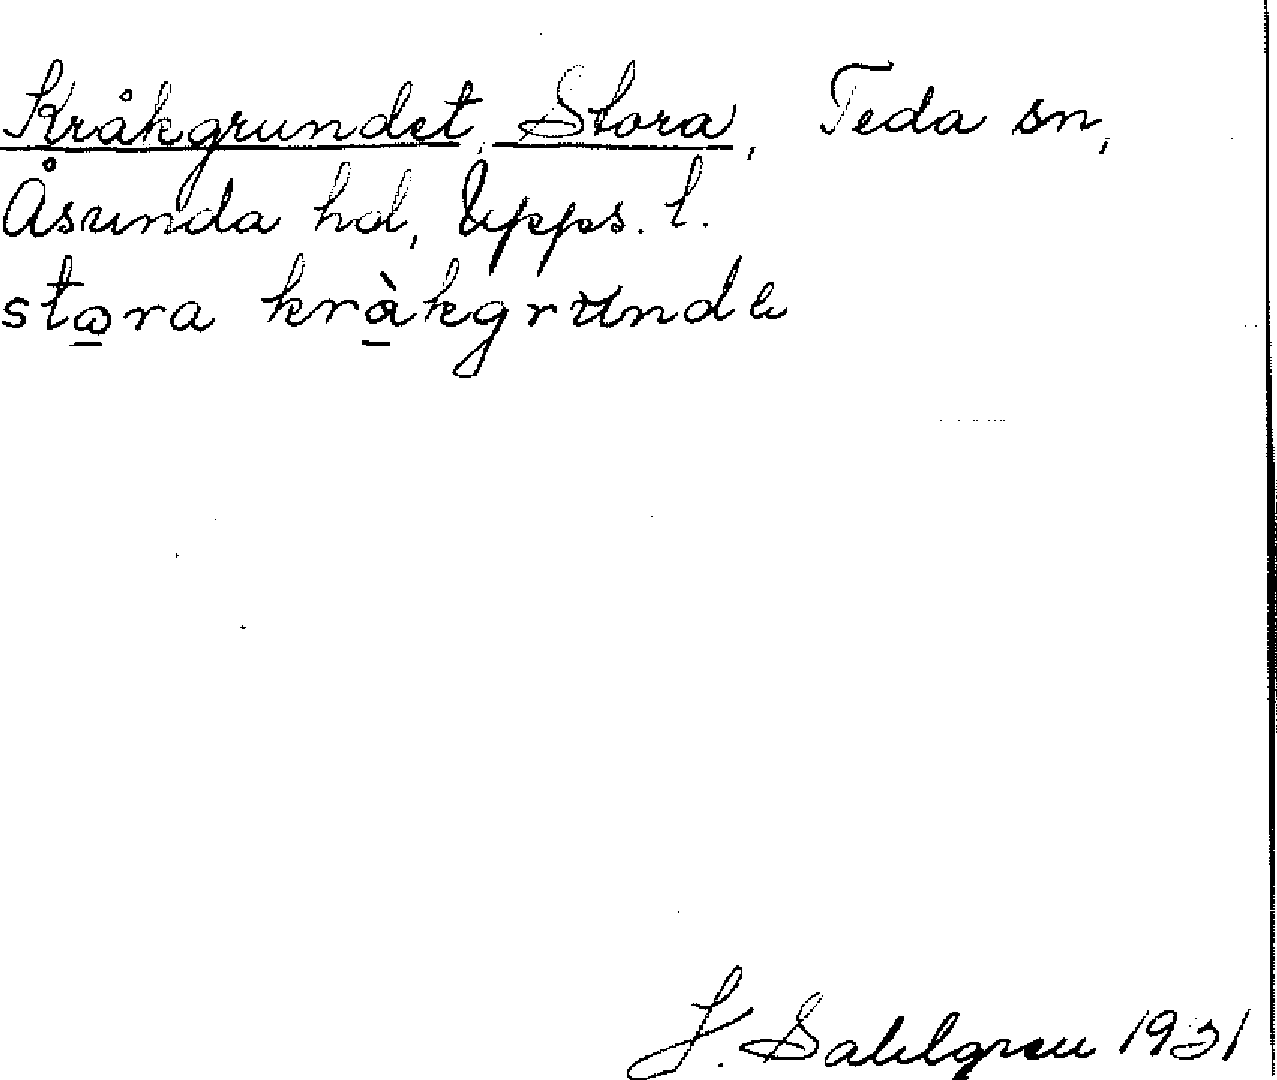 Kråkgrundet, Stora, Teda sn,
Åsunda hd, Upps. l.
stɷra kràkgrunde
J. Sahlgren 1931